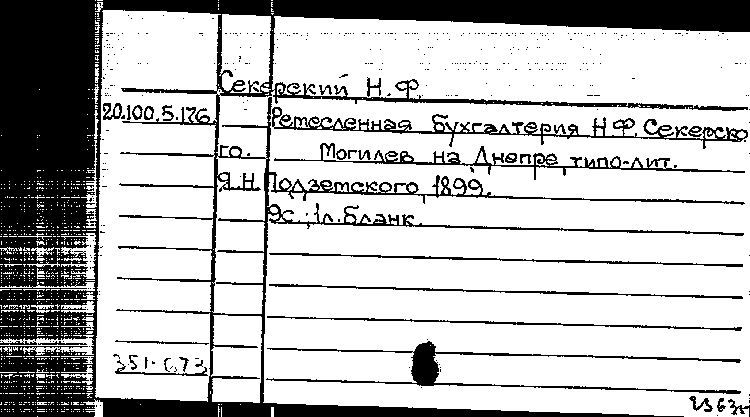 Секерский, Н.Ф.
20.100.5.176. Ремесленная бухгалтерия Н.Ф.Секерско
го. Могилев на Днепре, типо-лит.
Я.Н.Подземского, 1899.
9с.; 1л.бланк.
351-673